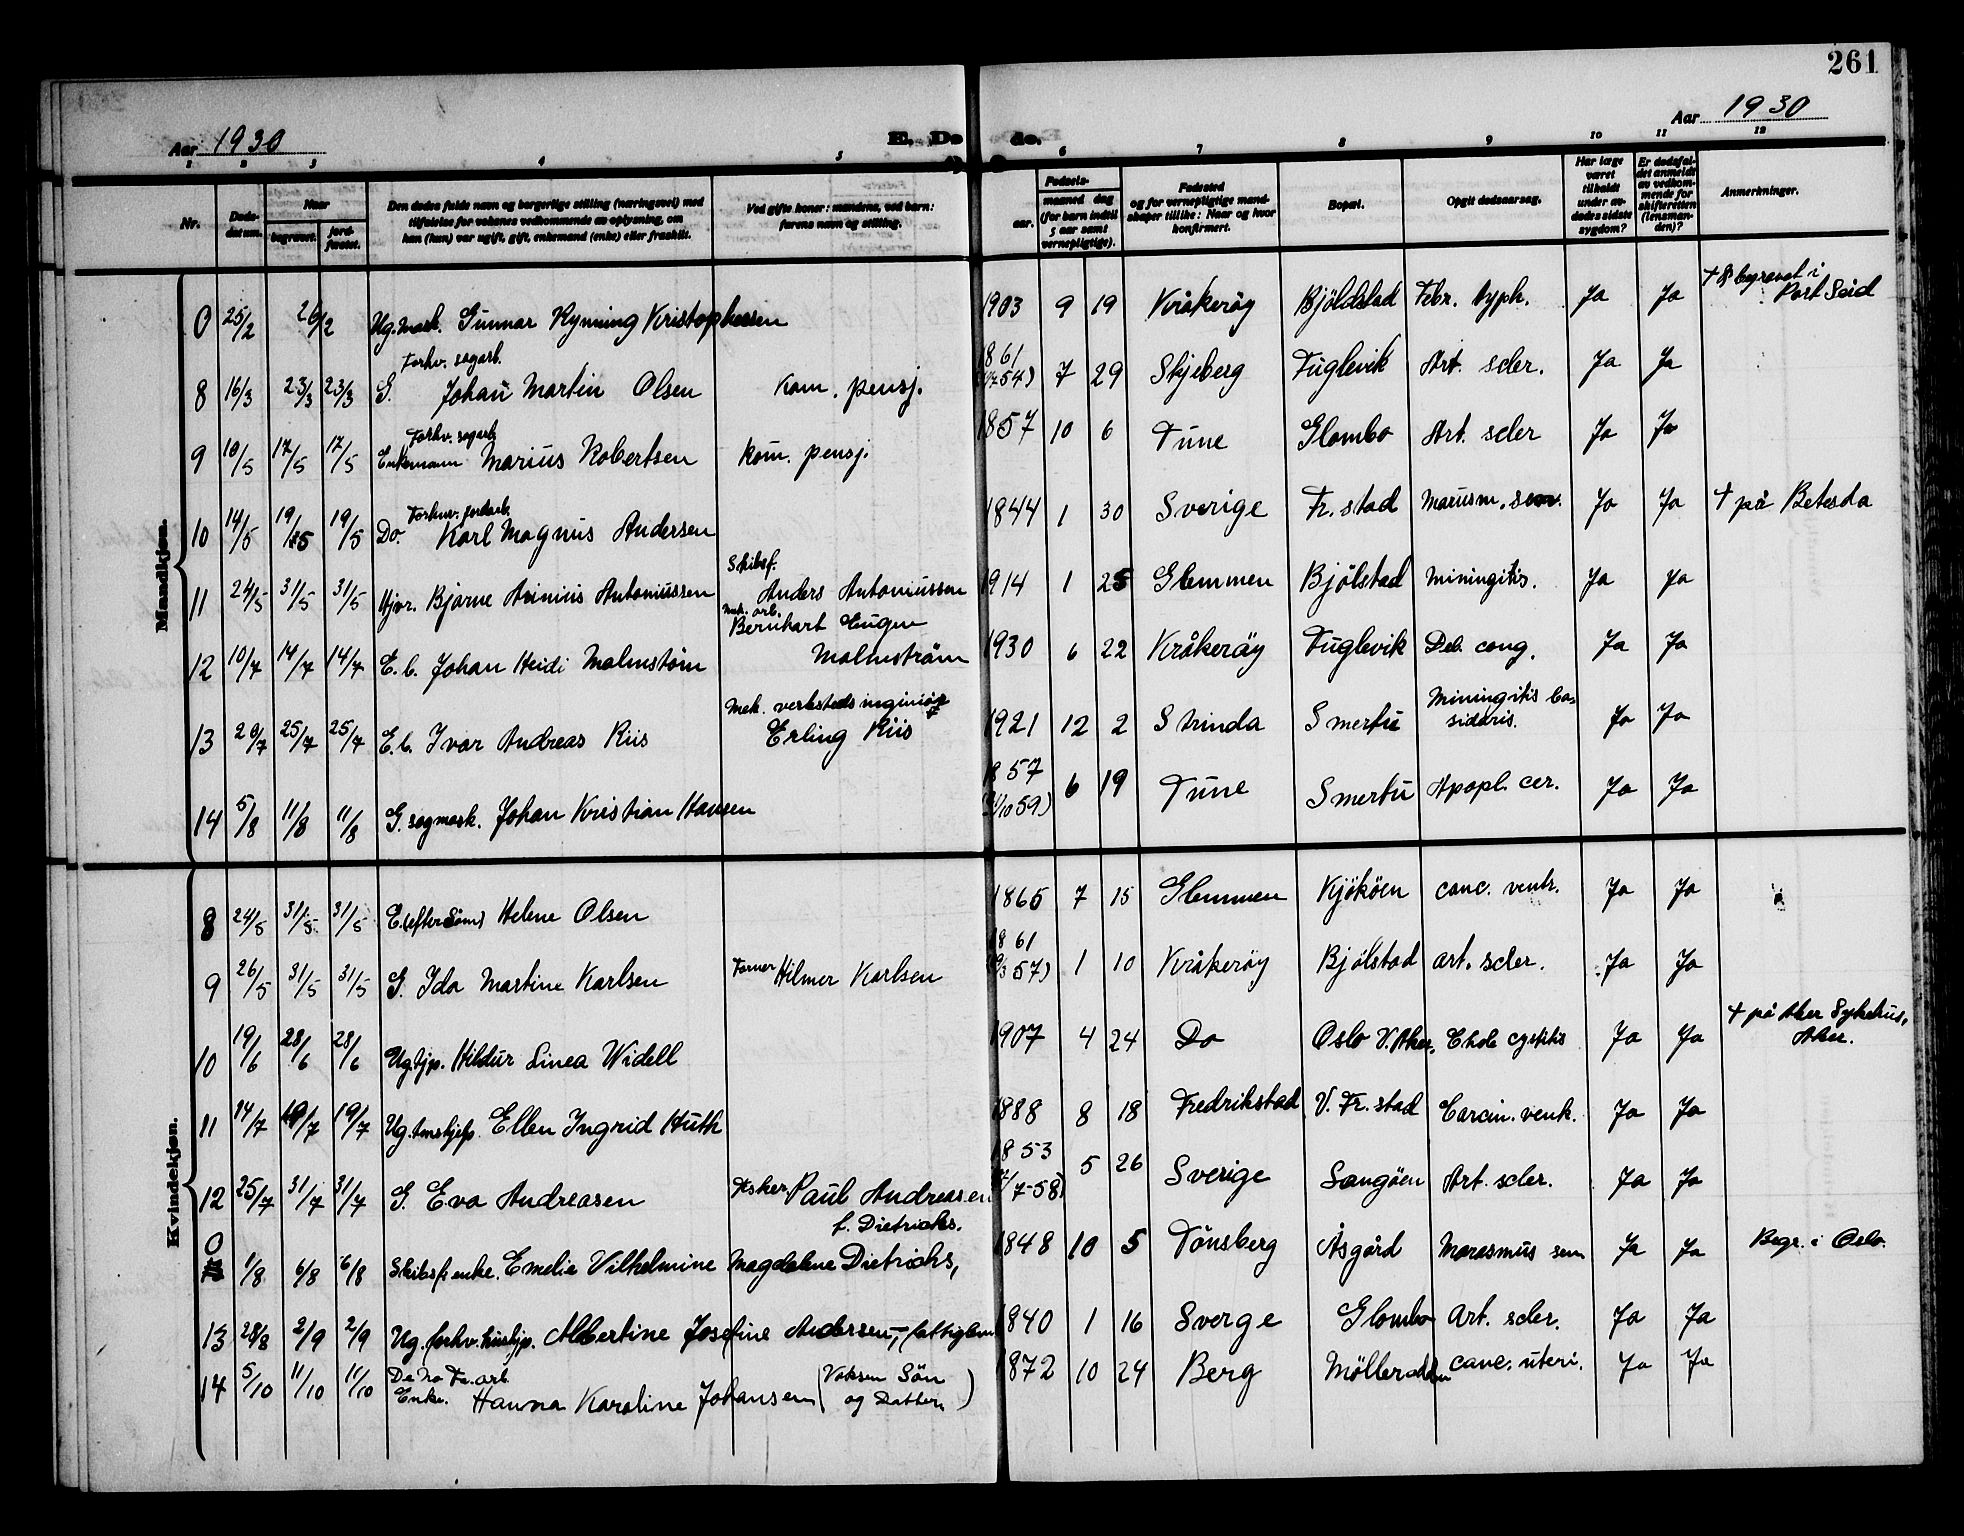 261
Aar 1930
E. Dø de.
Aar 1930
1 2 3 4 5 6 7 8 9 10 11 12
Nr. | Døds-datum. | Naar begravet. | jordfæstet. | Den dødes fulde navn og borgerlige stilling (næringsvei) med tilføielse for voksnes vedkommende av oplysning, om han (hun) var ugift, gift, enkemand (enke) eller fraskilt. | Ved gifte koner: mandens, ved barn: farens navn og stilling. | Fødsels- aar. | maaned dag (for barn indtil 5 aar samt vernepligtige). | Fødested og for vernepligtige mandskaper tillike: Naar og hvor konfirmert. | Bopæl. | Opgit dødsaarsag. | Har læge været tilkaldt under avdødes sidste sygdom? | Er dødsfaldet anmeldt av vedkommende for skifteretten (lensmanden)? | Anmerkninger.
Mandkjøn.
0 25/2 26/2 Ug. mask. Gunnar Ryming Kristophersen 1903 9 19 Kråkerøy Bjölstad Febr. typh. Ja Ja † & begravet i Port Said
8 16/3 23/3 23/3 G. Forhv. sagarb. Johan Martin Olsen Kom. pensj. 1861 54) 7 29 Skjeberg Fuglevik Art. scler. Ja Ja
9 10/5 17/5 17/5 Forhv. sagarb. Enkemann Marius Robertsen Kom. pensj. 1857 10 6 Tune Glombo Art. scler Ja Ja
10 14/5 19/5 19/5 Do. Karl Magnus Andersen 1844 1 30 Sverige Fr. stad Ja Ja † på Betesda
11 24/5 31/5 31/5 Hjvr. Bjarne Antoniussen Skibsf. Anders Antoniussen 1914 1 25 Glemmen Bjölstad Miningitis. Ja Ja
12 10/7 14/7 14/7 E. b. Johan Heidi Malmstöm Mek. arb. Bernhart Eugen Malmström 1930 6 22 Kråkeröy Fuglevik Deb. cong. Ja Ja
13 20/7 25/7 25/7 E. b. Ivar Andreas Riis Mek. verksteds inginiör Erling Riis 1921 12 2 Strinda Smertu Miningitis ba- Ja Ja
14 5/8 11/8 11/8 G. sagmask. Johan Kristian Hansen 1857 /10 59) 6 19 Tune Smertu Apopl. cer. Ja Ja
Kvindekjøn.
8 24/5 31/5 31/5 E. Helene Olsen 1865 7 15 Glemmen Kjököen canc. ventr. Ja Ja
9 26/5 31/5 31/5 G. Ida Martine Karlsen Former Hilmer Karlsen 1861 /3 57) 1 10 Kråkeröy Bjölstad art. scler. Ja Ja
10 19/6 28/6 28/6 Ug. tjp. Hildur Linea Widell 1907 4 24 Do Oslo V. Aker. Chole cystitis Ja Ja † på Aker Sykehus, Aker.
11 14/7 19/7 19/7 Ug. Ellen Ingrid Huth 1888 8 18 Fredrikstad V. Fr. stad Carcin. ventr. Ja Ja
12 25/7 31/7 31/7 G. Eva Andreasen Fisker Paul Andreasen 1853 /7-58) 5 26 Sverige Sangöen Art. scler. Ja Ja
0 1/8 6/8 6/8 Skibsf. enke. Emelie Vilhelmine Magdalene Dietrichs, f. Dietrichs. 1848 10 5 Tönsberg Åsgård Marasmus sen Ja Ja Begr. i Oslo.
13 28/8 2/9 2/9 Ug. forhv. hushjp. Albertine Josefine Andersen,- fattiglem 1840 1 16 Sverge Glombo Art. scler. Ja Ja
14 5/10 11/10 11/10 Enke. Hanna Karoline Johansen (Voksen Sön og Datter) 1872 10 24 Berg canc. uteri. Ja Ja